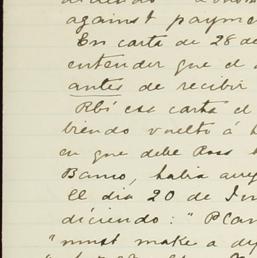 against payme
En carta de 28 de
entender que el
antes de recibir
Rbí esa carta el
biendo vuelto á
en que debe Ross
Banco, había
El dia 20 de
diciendo: "
"must make a